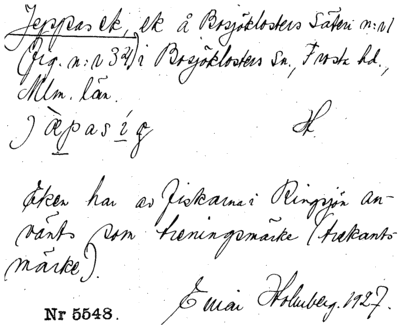 Jeppas ek, ek å Bosjöklosters säteri n:r 1
(fig. n:r 32) i Bosjöklosters sn., Frosta hd.,
Mlm. län.
jäpas íg H.
Eken har av fiskarna i Ringsjön an-
vänts som treningsmärke (trekants-
märke).
Emai Holmberg. 1927.
Nr 5548.